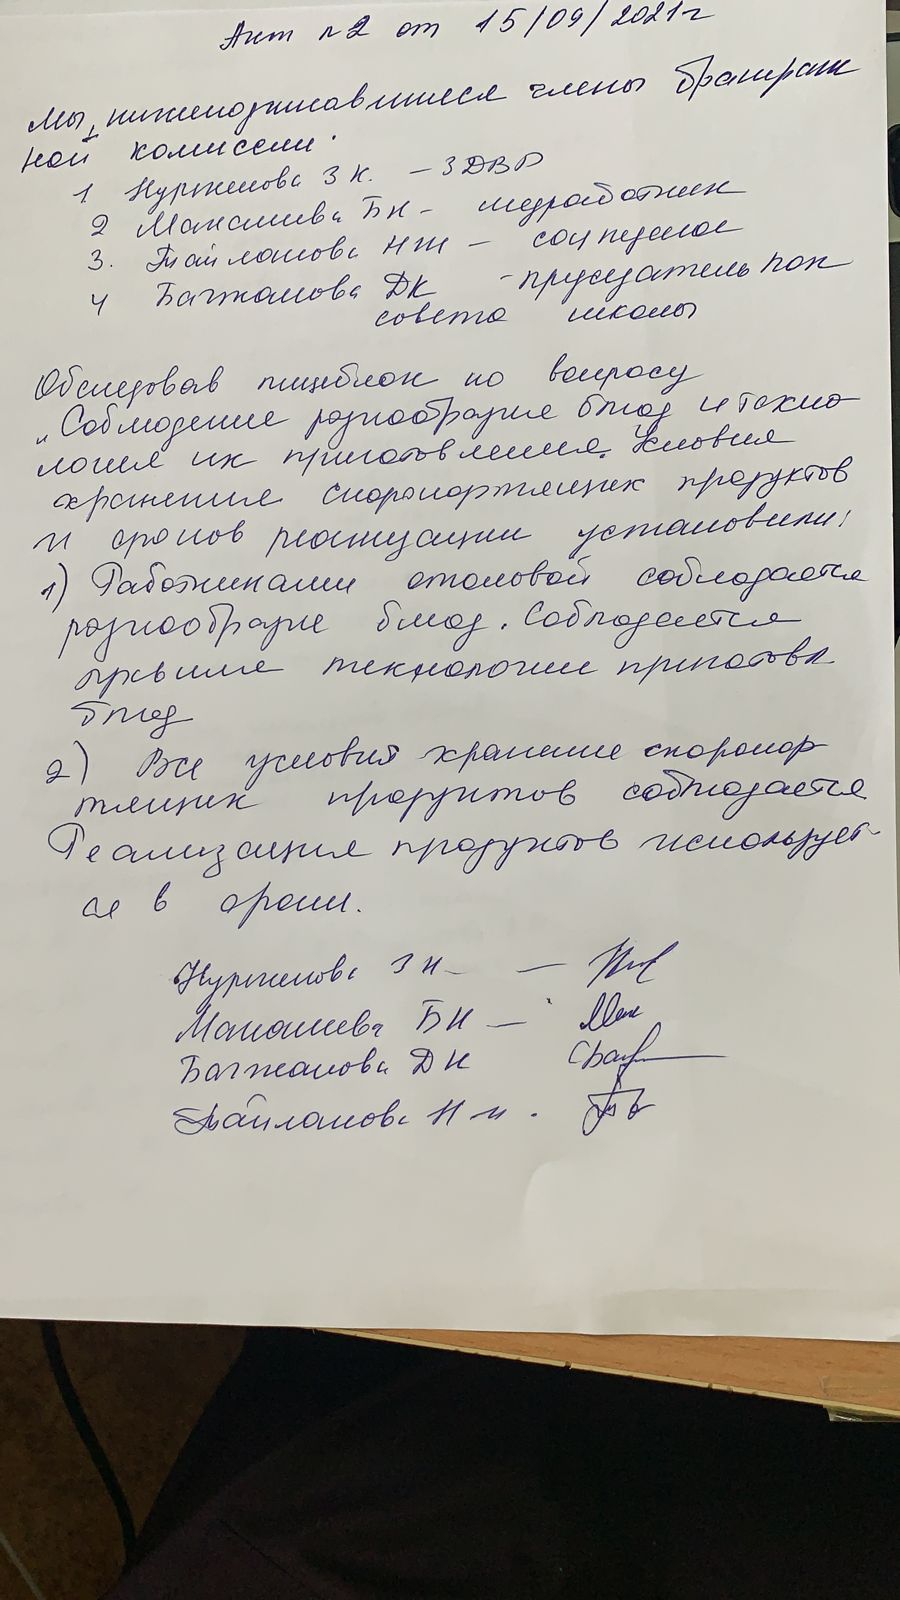 Акт №2 от 15/09/2021г
Мы, нижеподписавшиеся члены бракераж
ной комиссии:
1 Нуркенова З К. - ЗДВР
2 Макашева БН - медработник
3. Тайланова НЖ - соцпедагог
4 Багжанова ДК - председатель поп
совета школы
Обследовав пищеблок по вопросу
„Соблюдение разнообразия блюд и техно
логия их приготовления. Условия
хранения скоропортящих продуктов
и сроков реализации установили:
1) Работниками столовой соблюдается
разнообразие блюд. Соблюдается
технологии приготовл
блюд
2) Все условия хранение скоропор
тящих продуктов соблюдается
Реализация продуктов использует-
ся в сроки.
Нуркенова З К -
Макашева БН -
Багжанова ДК
Тайланова Н